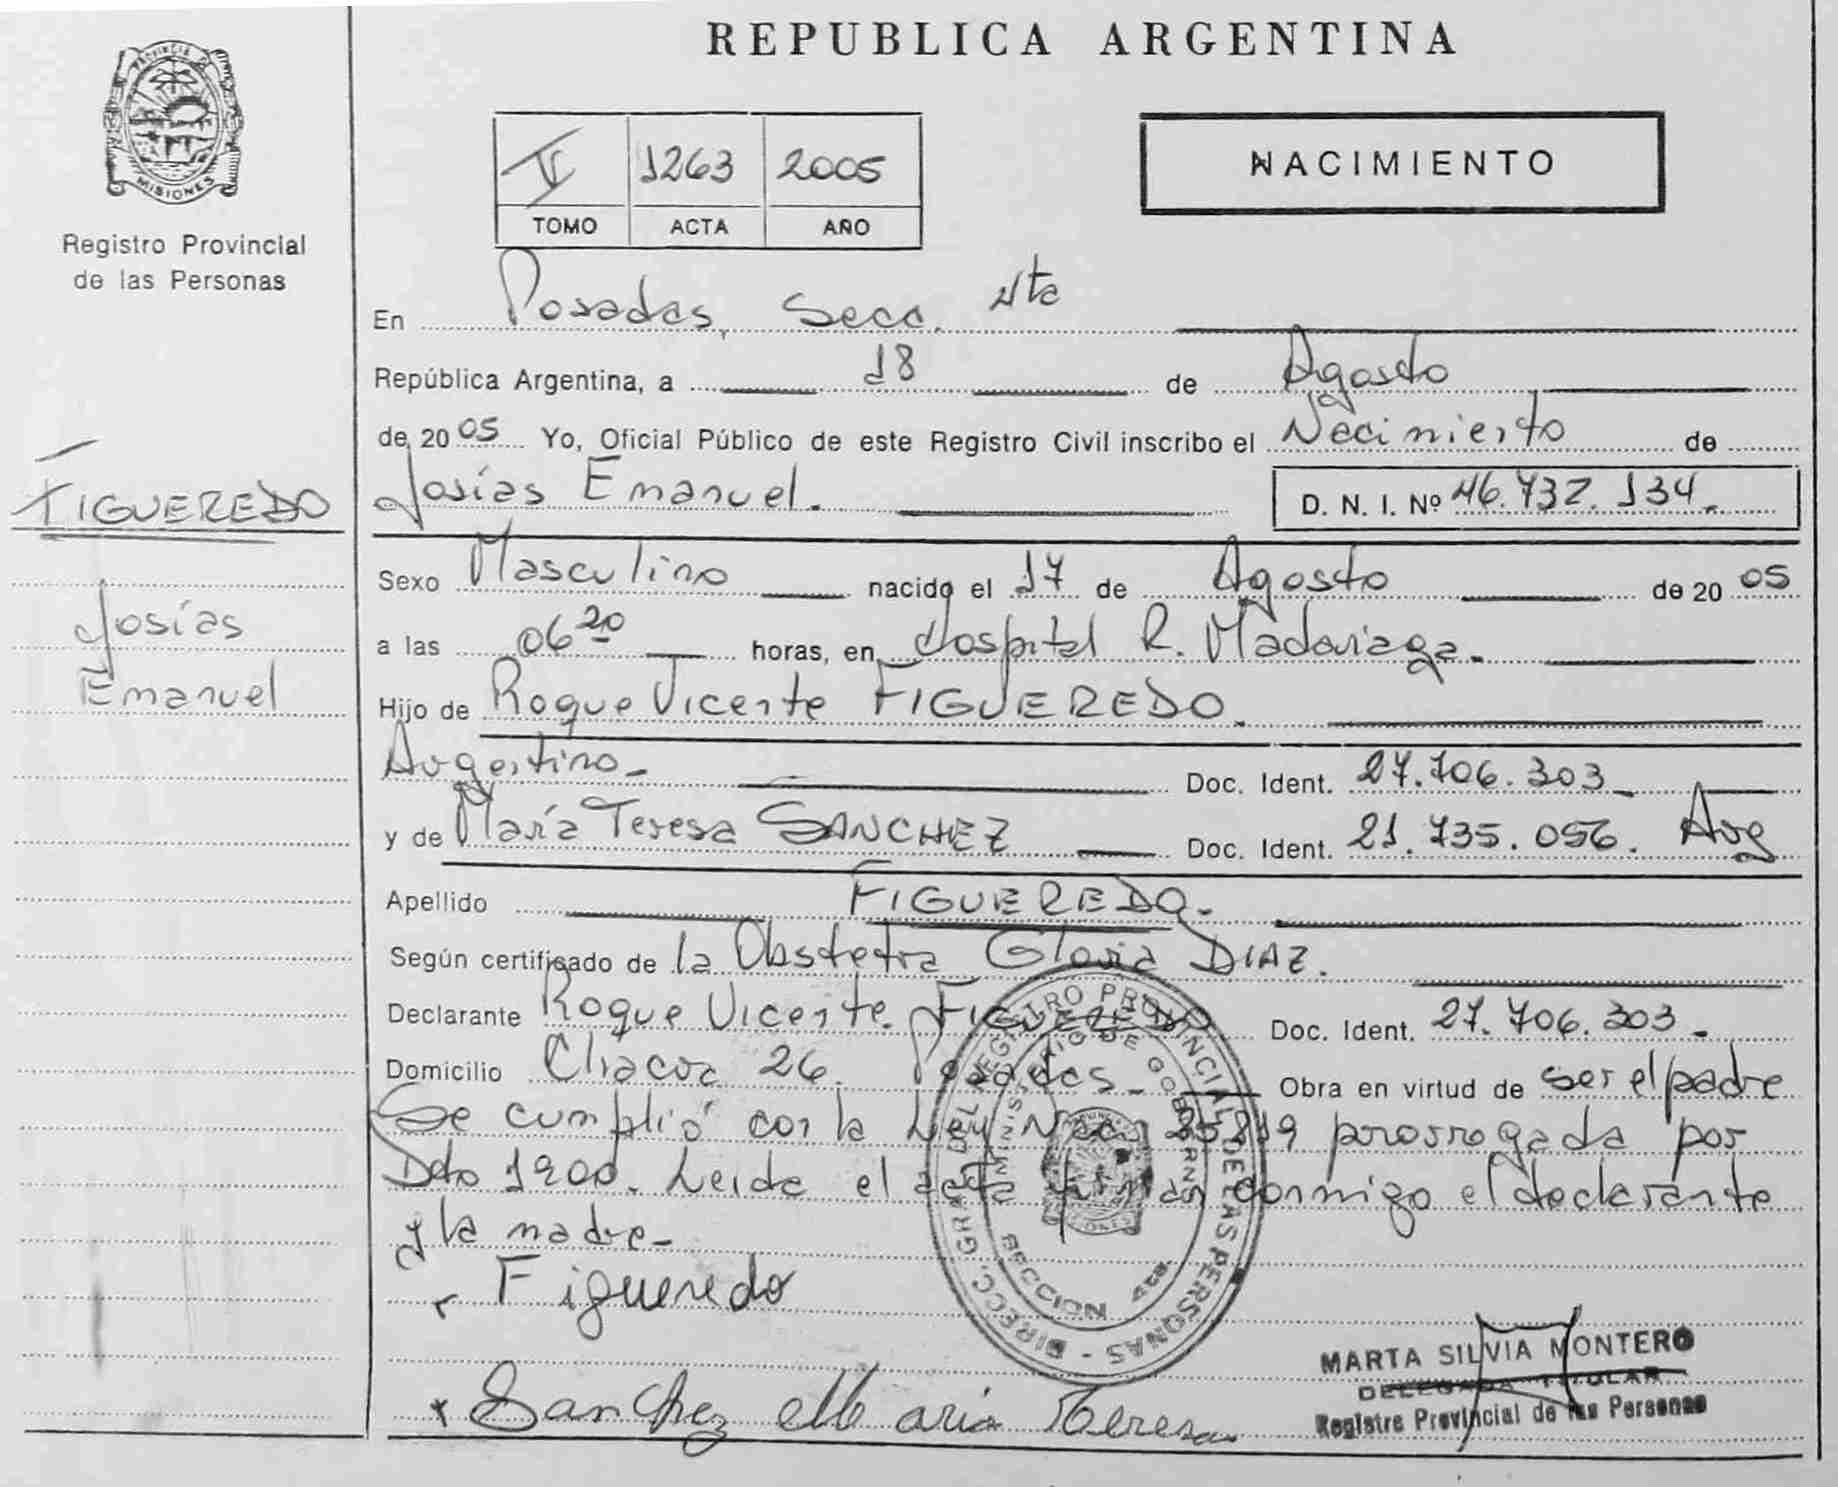 PROVINCIA DE
MISIONES
Registro Provincial
de las Personas
FIGUEREDO
Josías
Emanuel
REPUBLICA ARGENTINA
V 1263 2005
TOMO ACTA AÑO
NACIMIENTO
En Posadas, Secc. 4ta
República Argentina, a 18 de Agosto
de 2005 Yo, Oficial Público de este Registro Civil inscribo el Nacimiento de
Josías Emanuel. D. N. I. Nº 46.732.134.
Sexo Masculino nacido el 17 de Agosto de 2005
a las 06 20 horas, en Hospital R. Madariaga.
Hijo de Roque Vicente FIGUEREDO.
Argentino- Doc. Ident. 27.706.303
y de María Teresa SANCHEZ Doc. Ident. 21.735.056. Arg
Apellido FIGUEREDO.
Según certificado de la Obstetra Gloria DIAZ.
Declarante Roque Vicente FIGUEREDO Doc. Ident. 27.706.303
Domicilio Chacra 26. Posadas- Obra en virtud de ser el padre
Se cumplió con la Ley Nac. 25819 prorrogada por
Dcto 1200. Leida el acta firman conmigo el declarante
y la madre-
Figueredo
Sanchez Maria Teresa
DIRECC. GRAL. DEL REGISTRO PROVINCIAL DE LAS PERSONAS -
MINISTERIO DE GOBIERNO
SECCION 4ta.
MARTA SILVIA MONTERO
DELEGADA TITULAR
Registro Provincial de las Personas